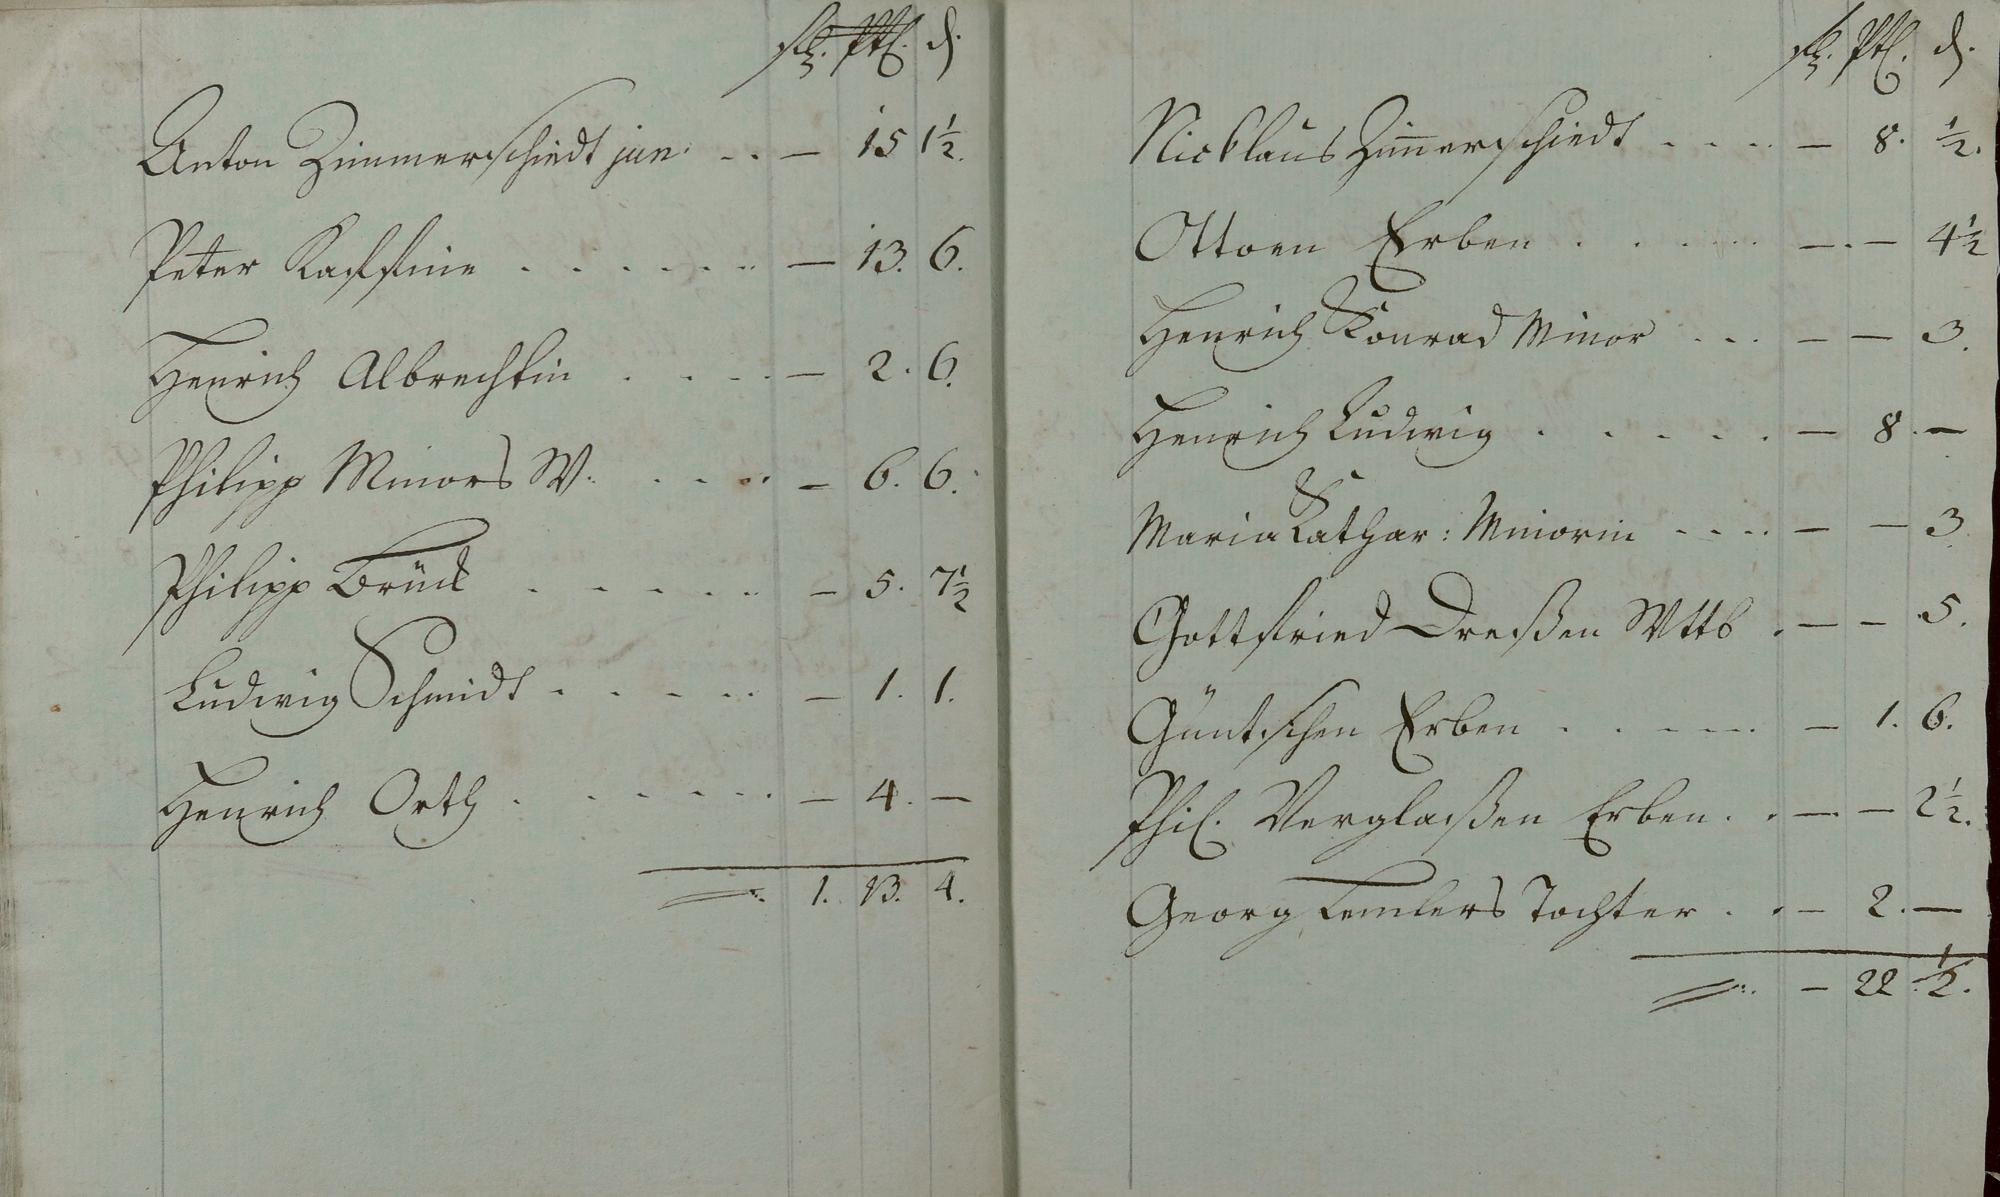 d.
Anton Zimmerschiedt jun: . . — 15 1½.
Peter . . . . . . . — 13. 6.
Henrich Albrechtin . . . . — 2. 6.
Philipp Minors W. . . . . — 6. 6.
Philipp Brück . . . . . — 5. 7½
Ludwig Schmidt . . . . . — 1. 1.
Henrich Orth . . . . . . — 4. —
1. 13. 4.
d.
Nicklaus Zim̄erschiedt . . . . — 8. ½.
Ottoen Erben . . . . . — . — 4½
Henrich Konrad Minor . . . — — 3.
Henrich Ludwig . . . . . — 8. —
Maria Kathar: Minorin . . . . — — 3
Gottfried Dreßen Wttb . — — 5.
Güntschen Erben . . . . . — 1. 6.
Phil. Verglaßen Erben. . — — 2½.
Georg Lemlers Tochter . . — 2. —
— 22 ½.